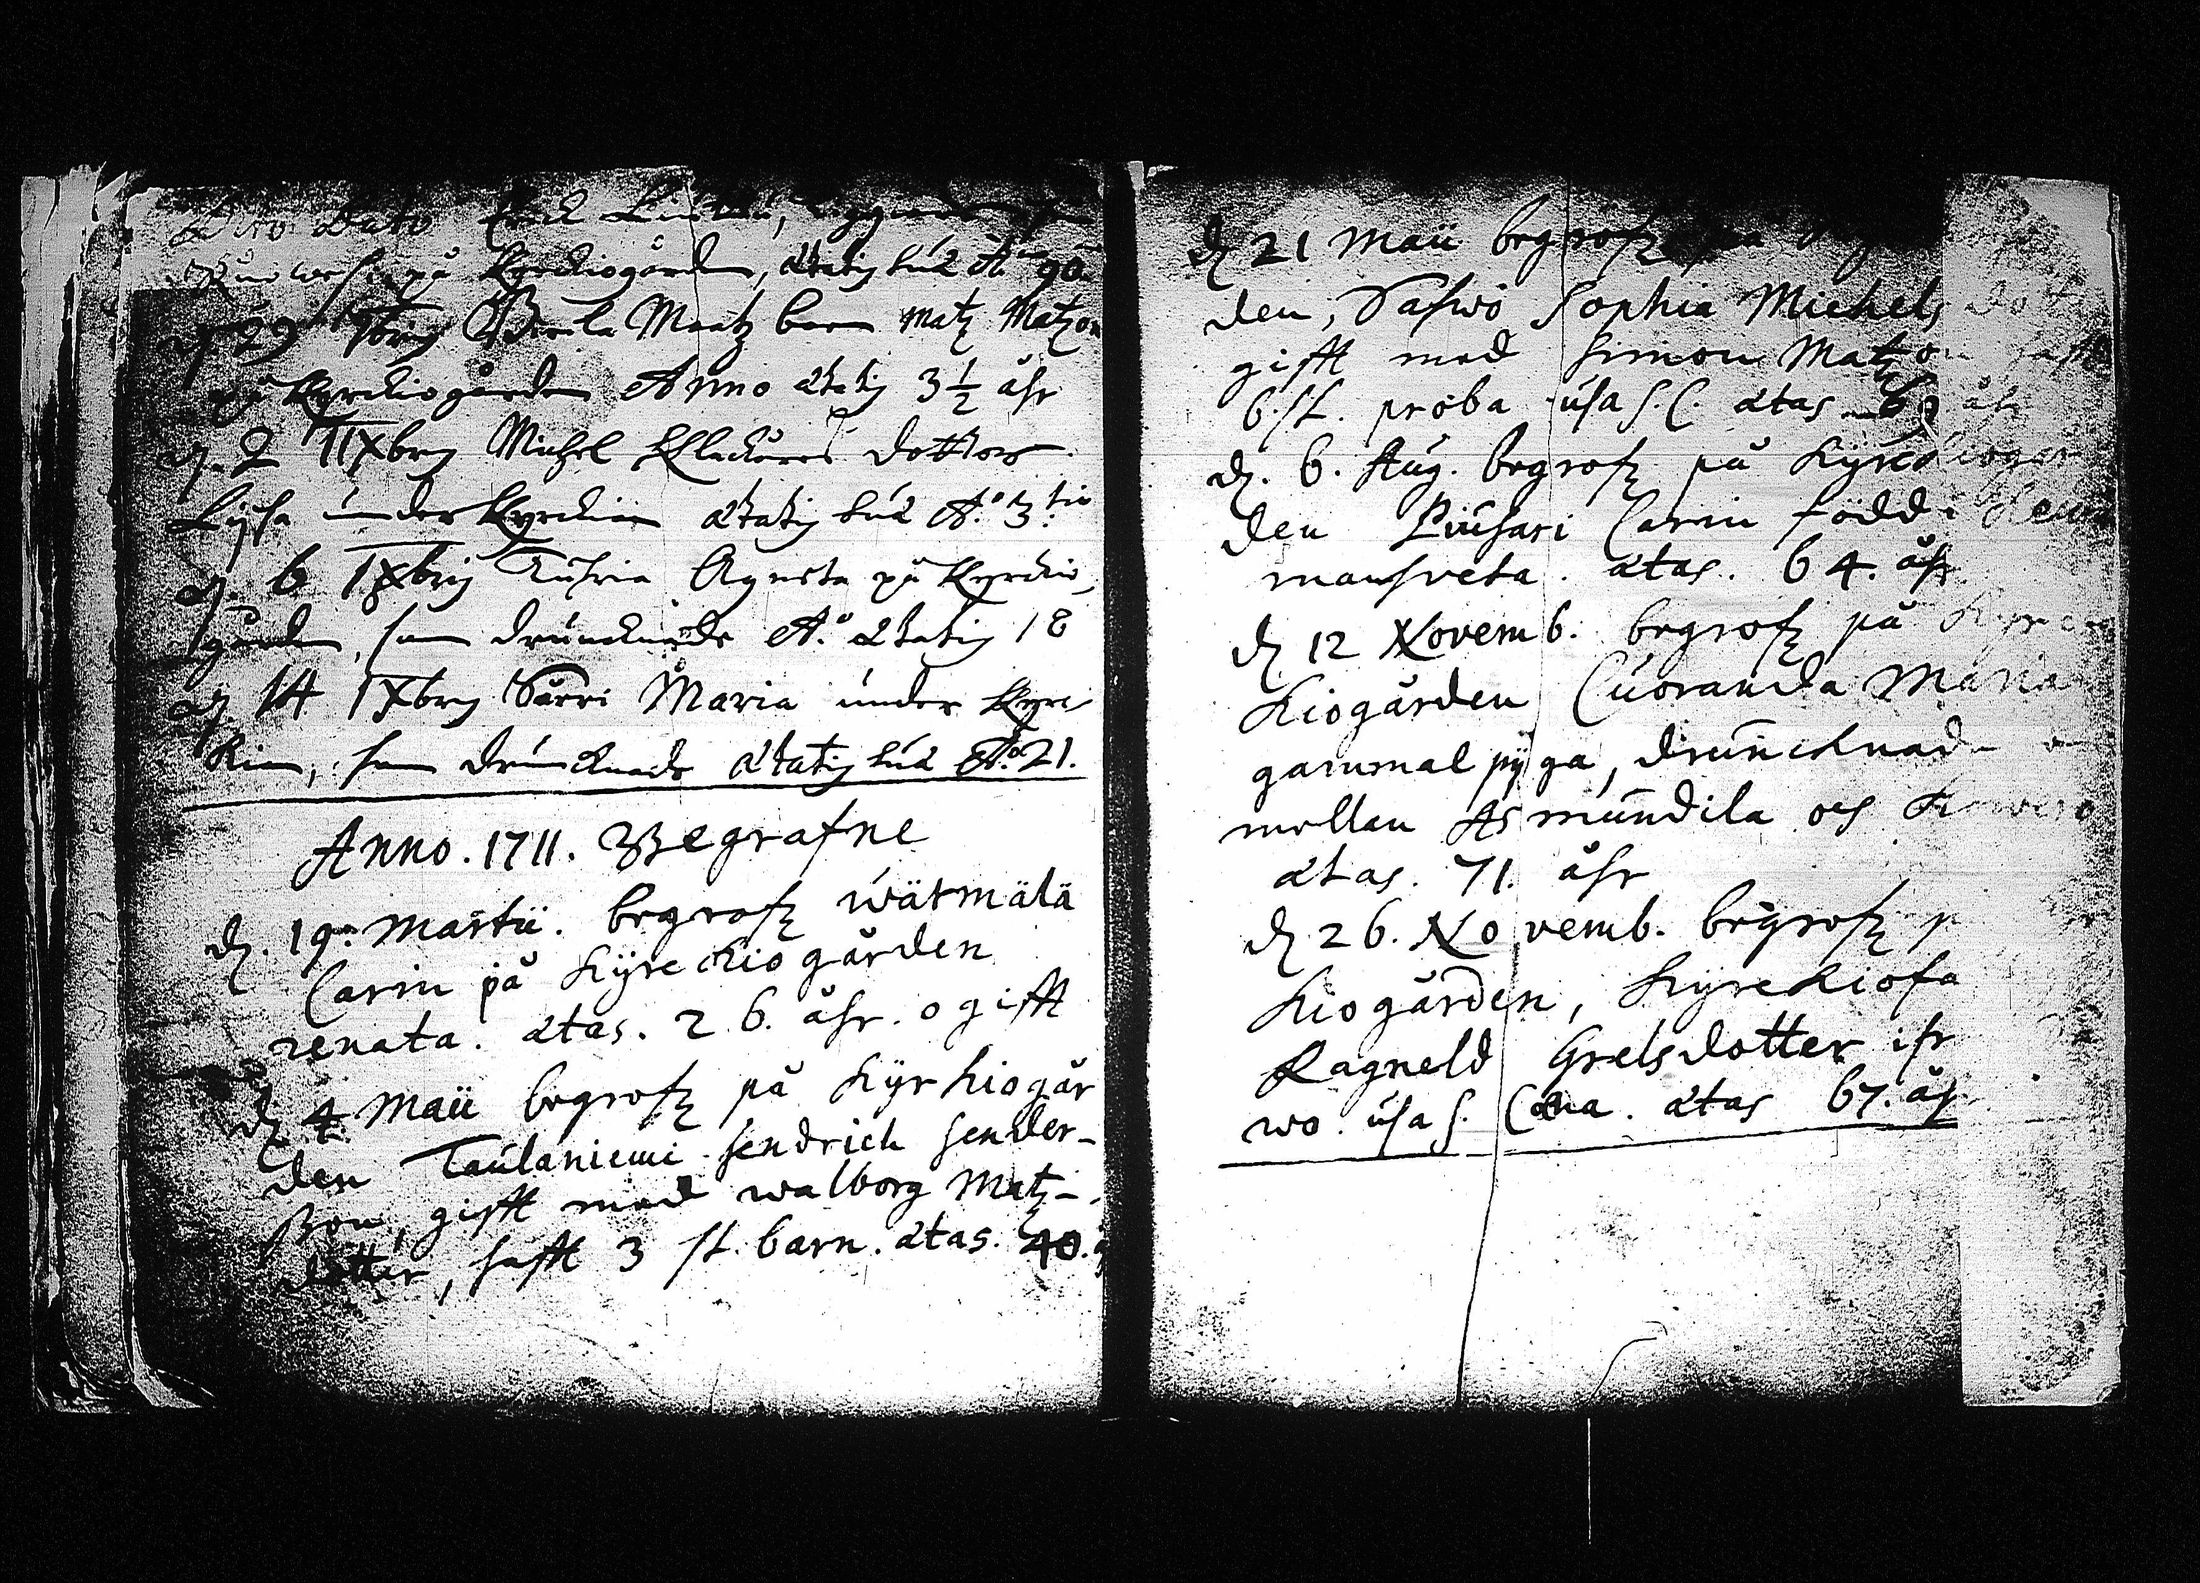 Dito Dato
på Kyrckiogården, ætatis suæ A:o 90
d. 29 7bris Matz barn Matz Matzon
på Kyrckiogården Anno ætatis 3 1/2 åhr
d. 2 IIXbris Michel dotter
Lijsa under Kyrckian ætatis suæ A:o 3:tio
d. 6 IXbris Agneta på Kyrckio,
gården, som druncknade A:o ætatis 18
d. 14 IXbris Särri Maria under Kyrc
kian, som drunknade ætatis suæ A:o 21.
Anno. 1711. Begrafne
d. 19. Martii. begrofz wätmälä
Carin på Kÿrckiogården
renata. ætas. 26. åhr. ogifft
d. 4 Maii begrofz på Kÿrkiogår
den Taulaniemi Hendrich Hender-
sson, gifft med walborg Matz-
dotter, hafft 3 st. barn. ætas. 40.
d. 21 Maii begrofz på
den, Saswo Sophia Michels dot
gifft med Simon Matzon hafft
6. st. proba usa S. C. ætas 69 åhr
d. 6. Aug. begrofz på Kÿrckiogår
den Piuhari Carin född i
ætas. 64. åhr
d. 12 Novemb. begrofz på Kyrc
kiogården Cuoranda Maria
gammal pyga, druncknade
mellan Asmundila och
ætas. 71. åhr
d. 26. Novemb. begrofz p
kiogården, Kÿrckiofa
Ragneld Grelsdotter ifr
wo. usa S. Cœna. ætas 67. åhr